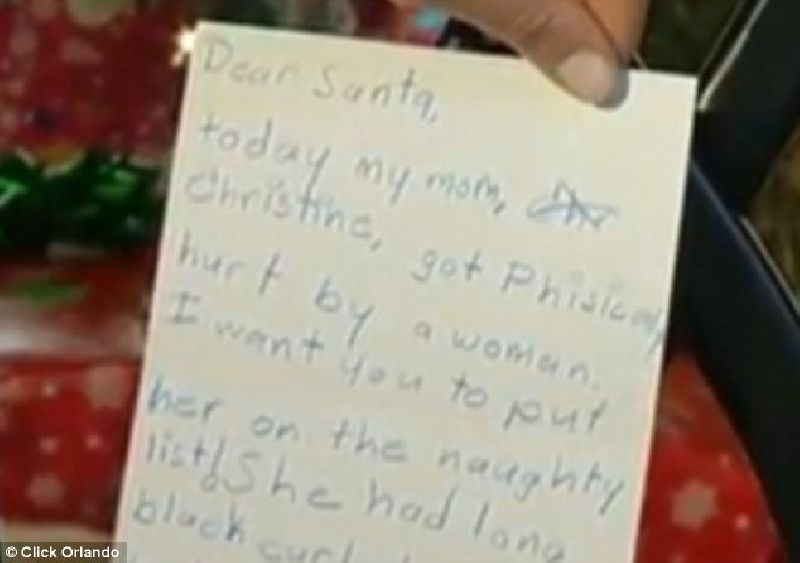 Dear Santa,
today my mom,
Christine, got Phisicaly
hurt by a woman.
I want you to put
her on the naughty
list! She had long
black curl
© Click Orlando